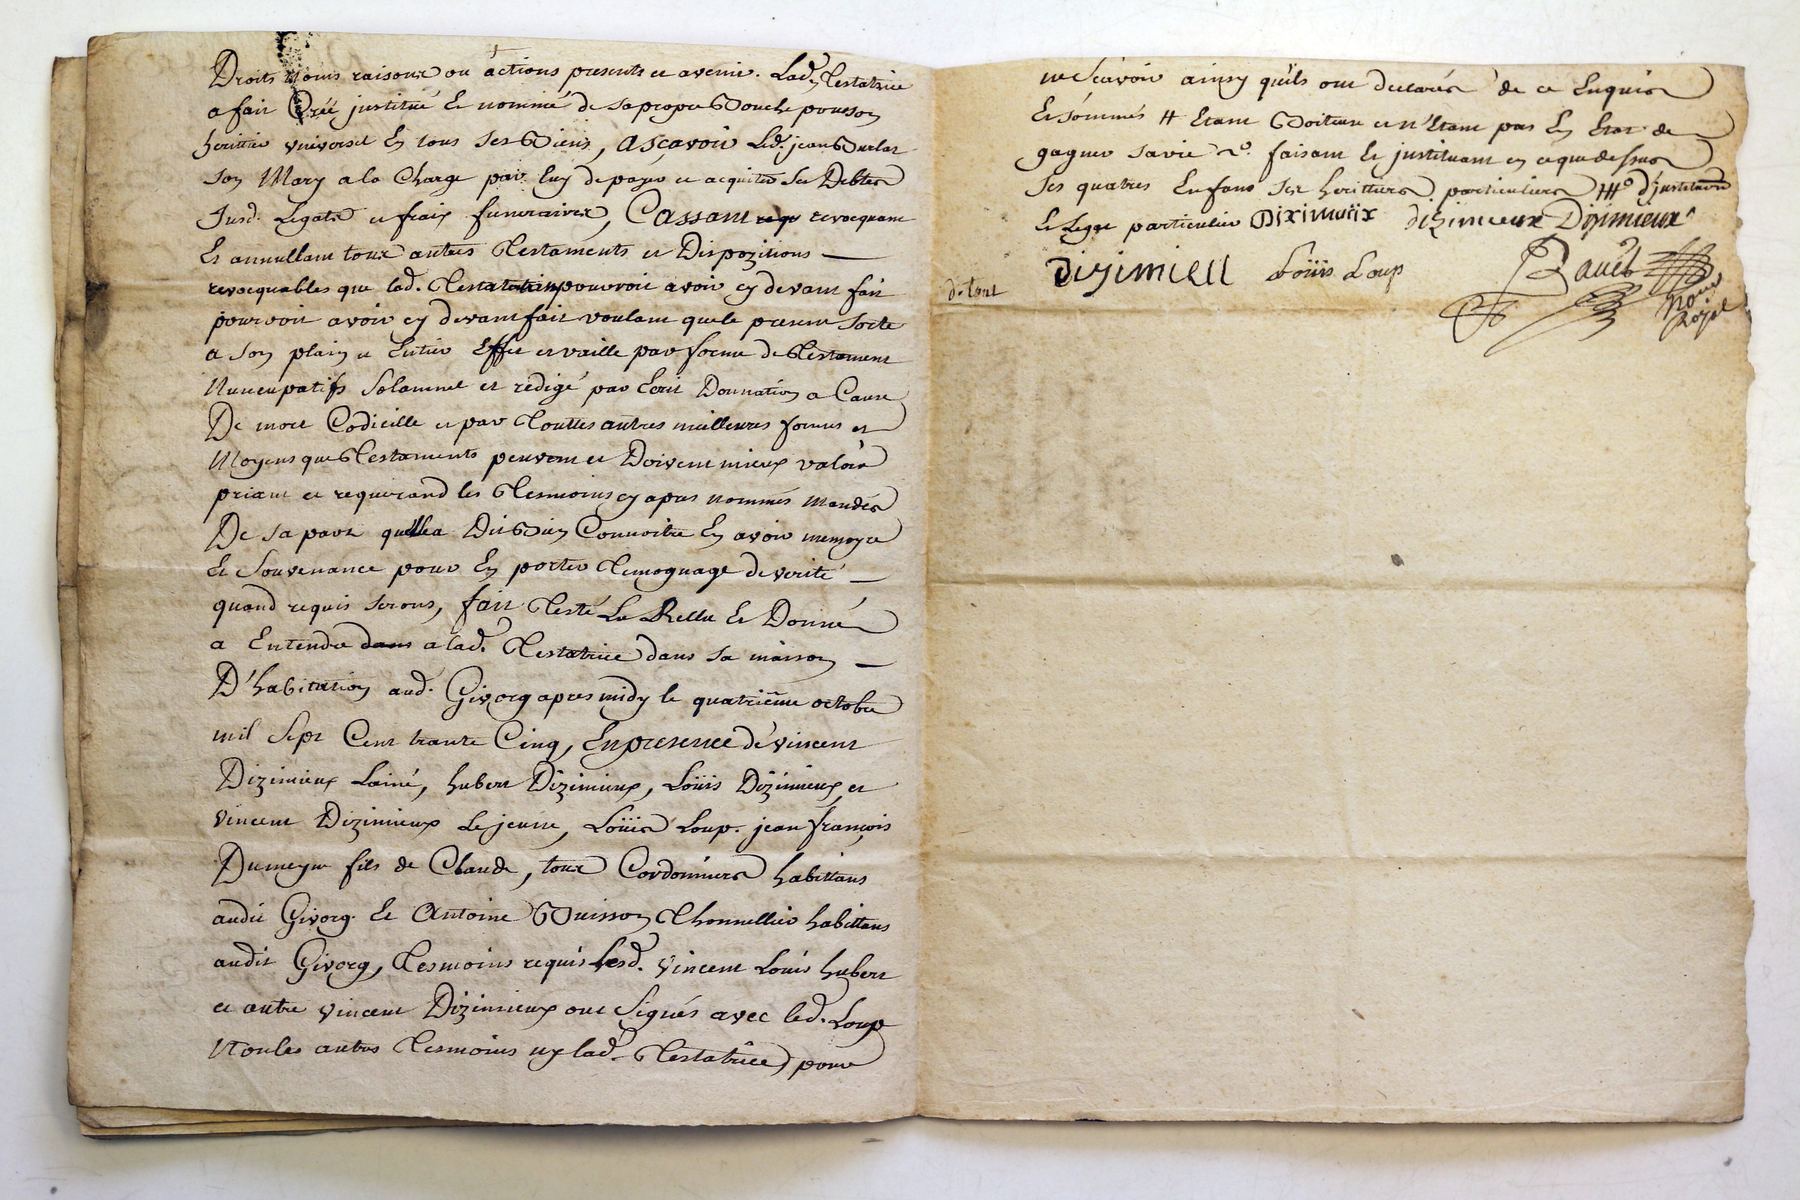 Droits noms raisons ou actions presents et avenir. Lad. Testatrice
a fait Créé justitué et nommé de sa propre Bouche pour son
herittier universel En tous ses Biens, Asçavoir Led. jean Burlat
son Mary a la Charge par luy de payer et acquiter ses Debtes
Susd. Legats et fraix funeraires, Cassant revocquant
Et annullant tous autres Testaments et Dispozitions
revocquables que lad. Testatrice pouvoit avoir cy devant fait
pourroit avoir cy devant fait voulant que le present sorte
a son plain et Entier Effet et vaille par forme de Testament
Nuncupatifs Solamnel et redigé par Ecrit Donnation a Cause
De mort Codicille et par Touttes autres meilleures formes et
Moyens que Testaments peuvent et Doivent mieux valoir
priant et requerand les Tesmoins cy apres nommés mandés
De sa part quelle a Dit Bien Connoitre En avoir memoyre
Et Souvenance pour En porter Temognage de verité
quand requis serons, fait Testé Lu Rellu Et Donné
a Entendre dans a lad. Testatrice dans sa maison
D'habitation aud. Givorg apres midy le quatriéme octobre
mil Sept Cent trante Cinq, En presence de vincent
Dizimieux Lainé, hubert Dizimieux, Loüis Dizimieux et
vincent Dizimieux Le jeune, Loüis Loup. jean françois
Dumeyn fils de Claude, tous Cordonniers habittans
audit Givorg. Et Antoine Buisson Thonnellier habittans
audit Givorg, Tesmoins requis Lesd. vincent Loüis hubert
et autre vincent Dizimieux ont Signés avec led. Loup
Non les autres Tesmoins ny lad. Testatrice pour
ne Scavoir ainsy qu'ils ont declarés de ce Enquis
Et sommés # Etant Boiteux et n'Etant pas En Etat de
gagner sa vie faisant et justituant en ce que dessus
Ses quatres Enfans ses herittiers particuliers # d'justitution
Et Legat particulier Diximieix dizimieux Dizimieux
dizimieu Loüis Loup
de tout
Nore
Royal